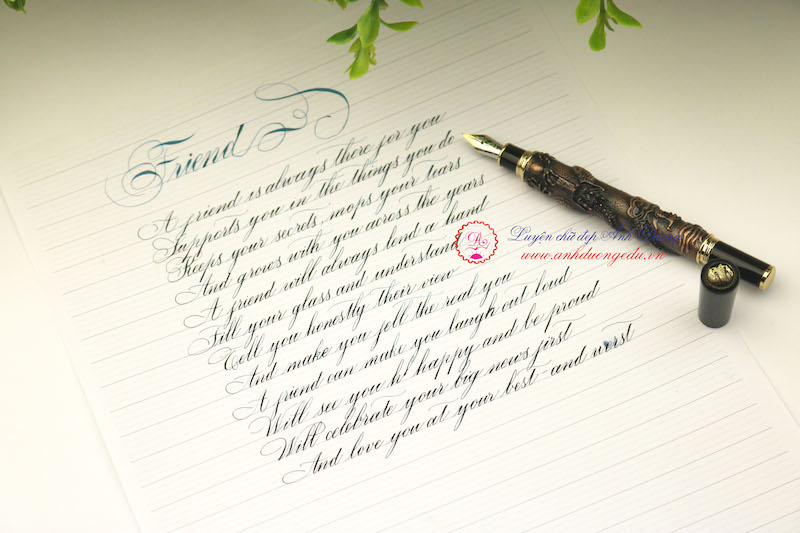 Friend
A friend is always there for you
Supports you in the things you do
Keeps your secrets, mops your tears
And grows with you across the years
A friend will always lend a hand
Fill your glass and understand
Tell you honestly their view
And make you fell the real you
A friend can make you laugh out loud
Will see you happy and be proud
Will celebrate your big news first
And love you at your best and worst
Luyện chữ đẹp Ánh Dương
www.anhduongedu.vn